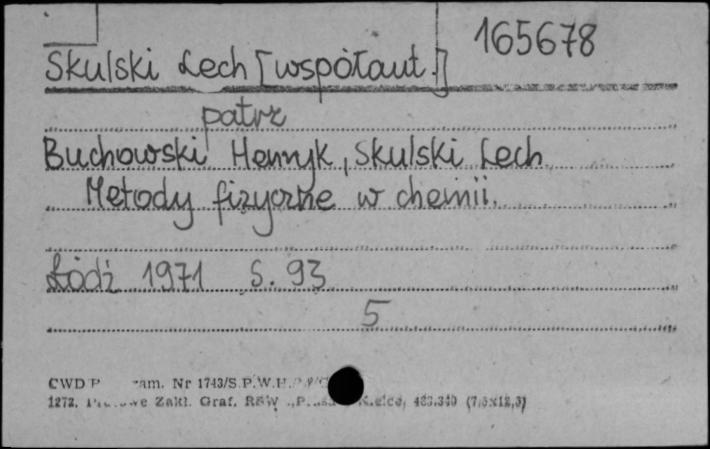 165678
Skulski Lech [współaut.]
patrz
Buchowski Henryk, Skulski Lech
Metody fizyczne w chemii.
Łódź 1971 S. 93
5
CWD am. Nr 1743/S.P.W.H.
1272. Zakł. Graf. RSW Kielce, (7,5x12,5)